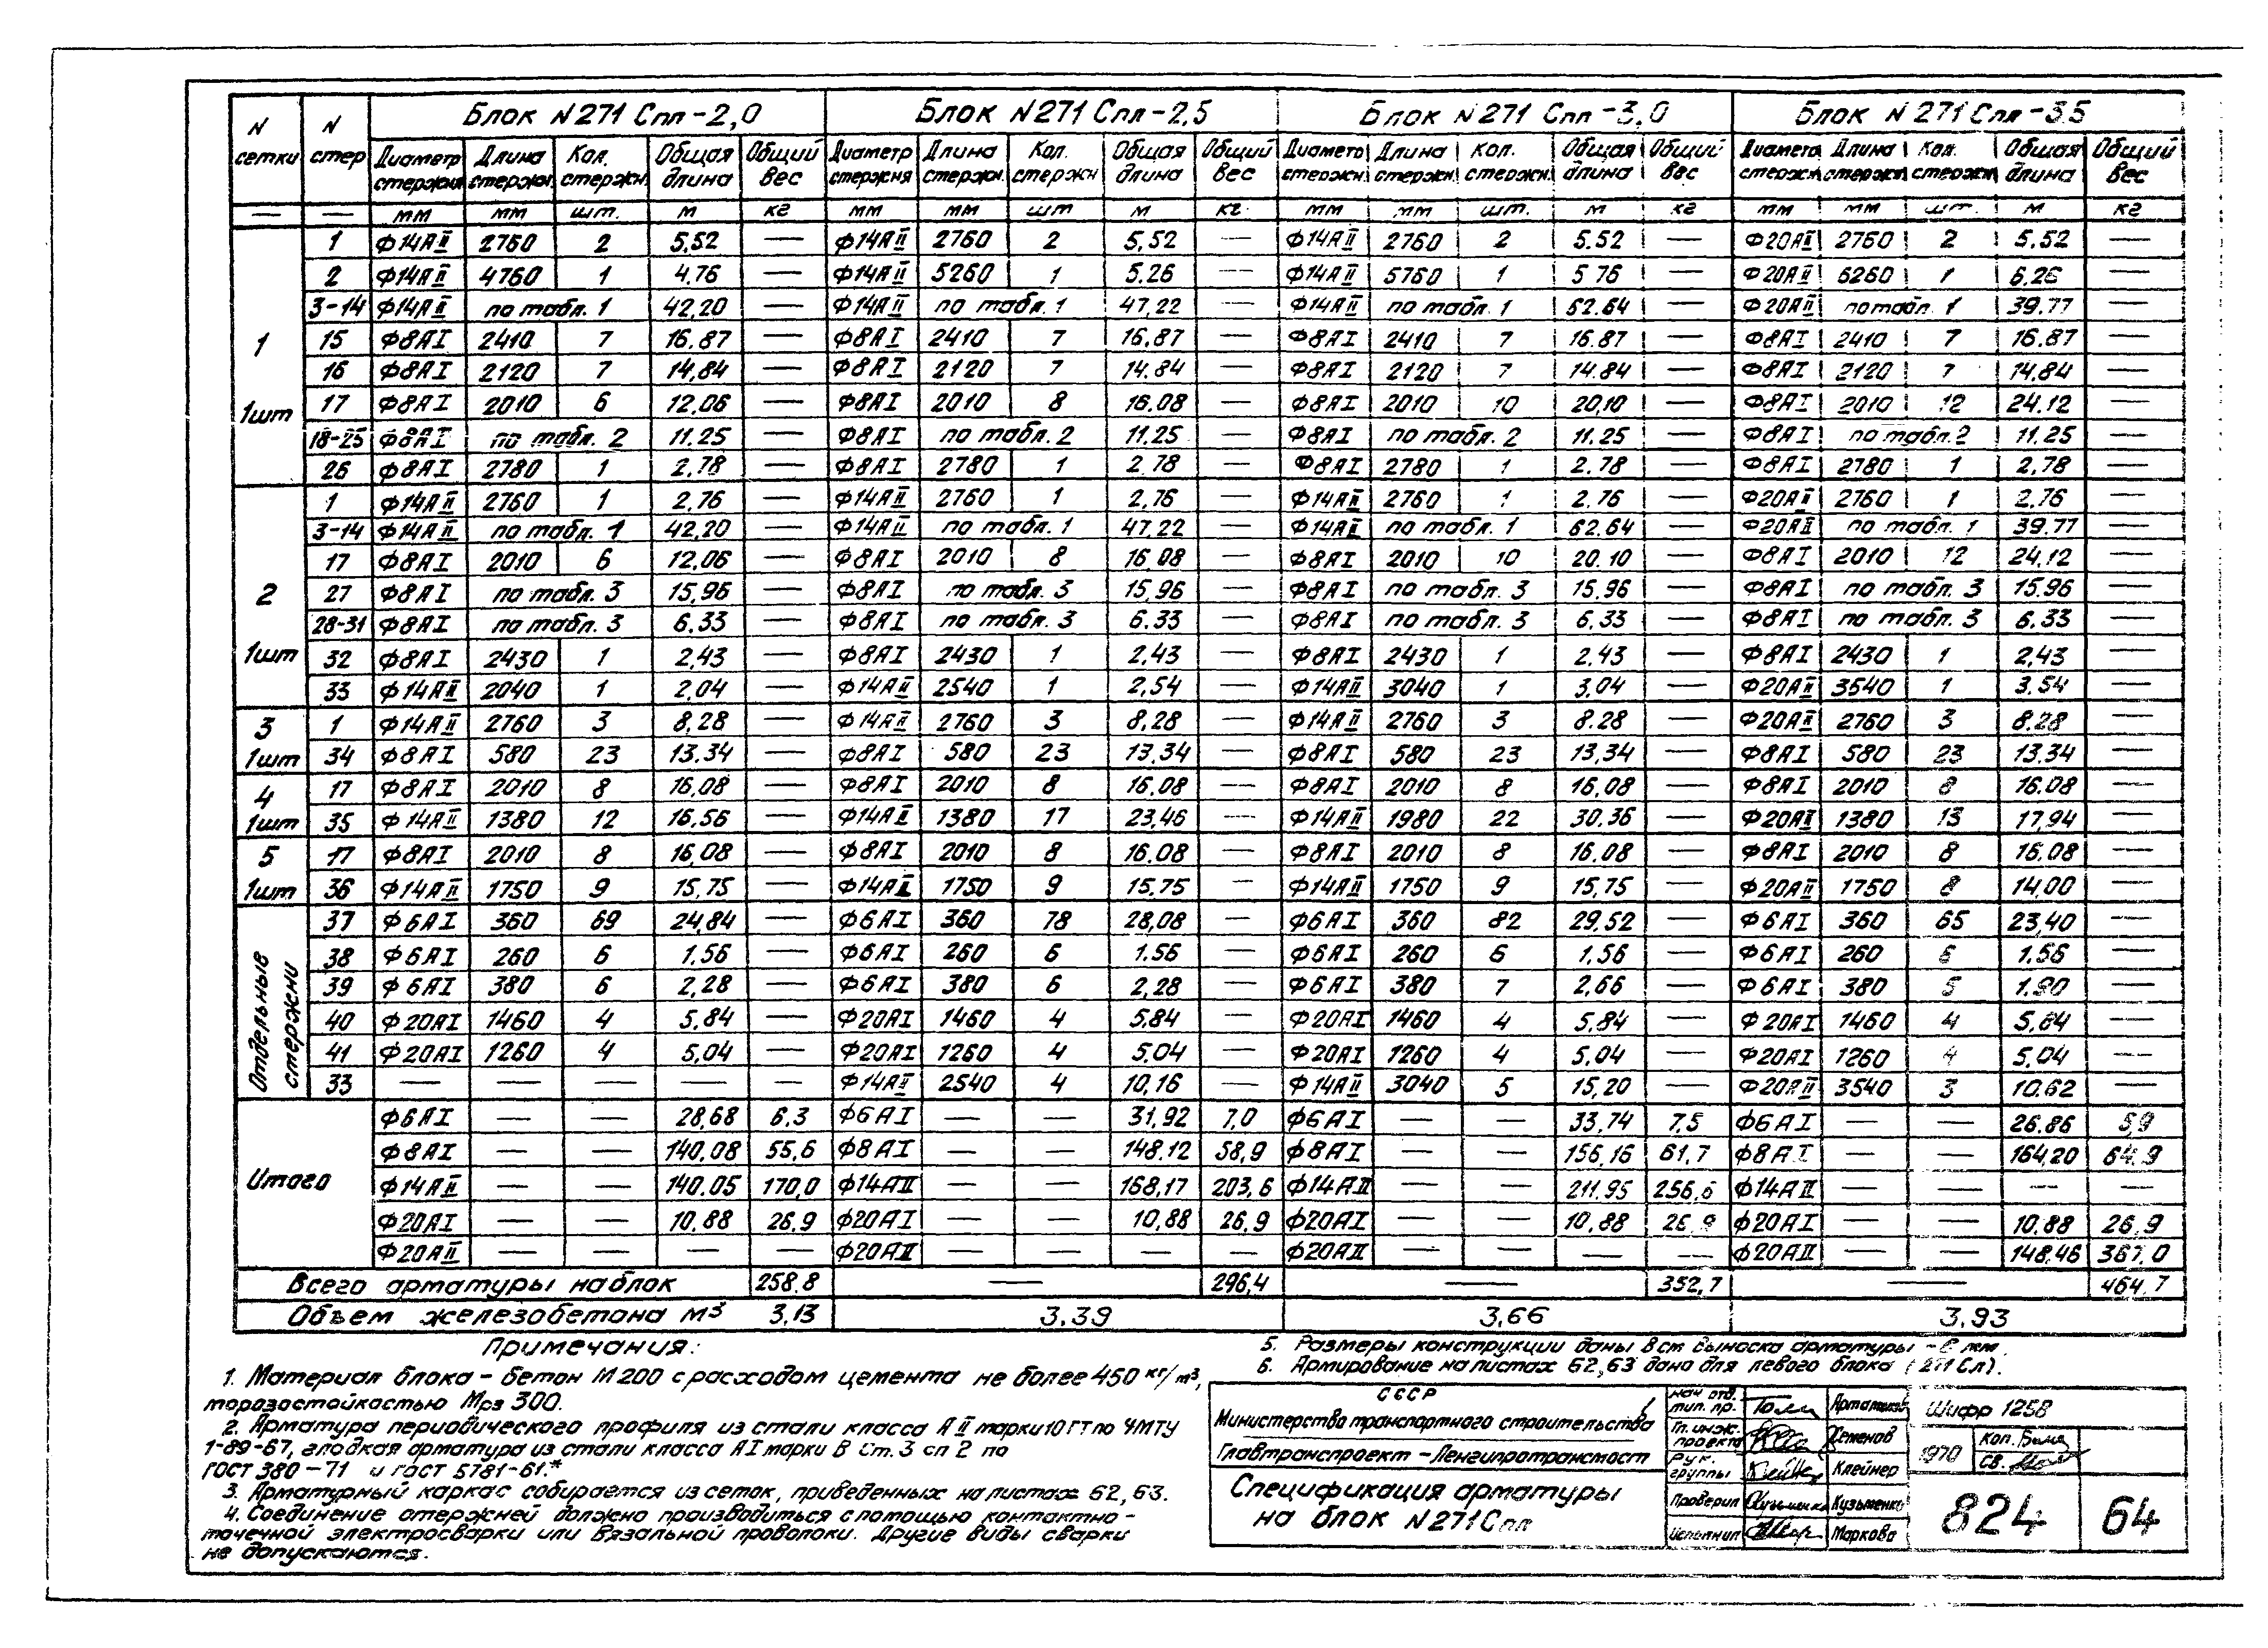 N сетки | N стер | Блок N271 Спл-2,0 | Блок N271 Спл-2,5 | Блок N271 Спл-3,0 | Блок N271 Спл-3,5
Диаметр стержня | Длина стержн. | Кол. стержн. | Общая длина | Общий вес | Диаметр стержня | Длина стержн. | Кол. стержн | Общая длина | Общий вес | Диаметр стержн. | Длина стержн. | Кол. стержн. | Общая длина | Общий вес | Диаметр стержн | Длина стержн | Кол. стержн | Общая длина | Общий вес
— | — | мм | мм | шт. | м | кг | мм | мм | шт | м | кг | мм | мм | шт. | м | кг | мм | мм | шт. | м | кг
1 1шт | 1 | Ф14АII | 2760 | 2 | 5,52 | — | Ф14АII | 2760 | 2 | 5,52 | — | Ф14АII | 2760 | 2 | 5.52 | — | Ф20АII | 2760 | 2 | 5.52 | —
2 | Ф14АII | 4760 | 1 | 4.76 | — | Ф14АII | 5260 | 1 | 5.26 | — | Ф14АII | 5760 | 1 | 5 76 | — | Ф20АII | 6260 | 1 | 6.26 | —
3-14 | Ф14АII | по табл. 1 | 42,20 | — | Ф14АII | по табл. 1 | 47,22 | — | Ф14АII | по табл. 1 | 62.64 | — | Ф20АII | по табл. 1 | 39.77 | —
15 | Ф8АI | 2410 | 7 | 16.87 | — | Ф8АI | 2410 | 7 | 16,87 | — | Ф8АI | 2410 | 7 | 16.87 | — | Ф8АI | 2410 | 7 | 16.87 | —
16 | Ф8АI | 2120 | 7 | 14,84 | — | Ф8АI | 2120 | 7 | 14.84 | — | Ф8АI | 2120 | 7 | 14.84 | — | Ф8АI | 2120 | 7 | 14,84 | —
17 | Ф8АI | 2010 | 6 | 12,06 | — | Ф8АI | 2010 | 8 | 16.08 | — | Ф8АI | 2010 | 10 | 20,10 | — | Ф8АI | 2010 | 12 | 24.12 | —
18-25 | Ф8АI | по табл. 2 | 11.25 | — | Ф8АI | по табл. 2 | 11.25 | — | Ф8АI | по табл. 2 | 11.25 | — | Ф8АI | по табл. 2 | 11.25 | —
26 | Ф8АI | 2780 | 1 | 2,78 | — | Ф8АI | 2780 | 1 | 2.78 | — | Ф8АI | 2780 | 1 | 2.78 | — | Ф8АI | 2780 | 1 | 2,78 | —
2 1шт | 1 | Ф14АII | 2760 | 1 | 2,76 | — | Ф14АII | 2760 | 1 | 2,76 | — | Ф14АII | 2760 | 1 | 2.76 | — | Ф20АII | 2760 | 1 | 2,76 | —
3-14 | Ф14АII | по табл. 1 | 42,20 | — | Ф14АII | по табл. 1 | 47,22 | — | Ф14АII | по табл. 1 | 62.64 | — | Ф20АII | по табл. 1 | 39.77 | —
17 | Ф8АI | 2010 | 6 | 12,06 | — | Ф8АI | 2010 | 8 | 16,08 | — | Ф8АI | 2010 | 10 | 20.10 | — | Ф8АI | 2010 | 12 | 24,12 | —
27 | Ф8АI | по табл. 3 | 15,96 | — | Ф8АI | по табл. 3 | 15,96 | — | Ф8АI | по табл. 3 | 15,96 | — | Ф8АI | по табл. 3 | 15.96 | —
28-31 | Ф8АI | по табл. 3 | 6.33 | — | Ф8АI | по табл. 3 | 6.33 | — | Ф8АI | по табл. 3 | 6,33 | — | Ф8АI | по табл. 3 | 6,33 | —
32 | Ф8АI | 2430 | 1 | 2,43 | — | Ф8АI | 2430 | 1 | 2,43 | — | Ф8АI | 2430 | 1 | 2.43 | — | Ф8АI | 2430 | 1 | 2,43 | —
33 | Ф14АII | 2040 | 1 | 2,04 | — | Ф14АII | 2540 | 1 | 2,54 | — | Ф14АII | 3040 | 1 | 3,04 | — | Ф20АII | 3540 | 1 | 3.54 | —
3 1шт | 1 | Ф14АII | 2760 | 3 | 8,28 | — | Ф14АII | 2760 | 3 | 8,28 | — | Ф14АII | 2760 | 3 | 8.28 | — | Ф20АII | 2760 | 3 | 8.28 | —
34 | Ф8АI | 580 | 23 | 13.34 | — | Ф8АI | 580 | 23 | 13,34 | — | Ф8АI | 580 | 23 | 13,34 | — | Ф8АI | 580 | 23 | 13.34 | —
4 1шт | 17 | Ф8АI | 2010 | 8 | 16,08 | — | Ф8АI | 2010 | 8 | 16,08 | — | Ф8АI | 2010 | 8 | 16,08 | — | Ф8АI | 2010 | 8 | 16.08 | —
35 | Ф14АII | 1380 | 12 | 16,56 | — | Ф14АII | 1380 | 17 | 23,46 | — | Ф14АII | 1980 | 22 | 30.36 | — | Ф20АII | 1380 | 13 | 17,94 | —
5 1шт | 17 | Ф8АI | 2010 | 8 | 16,08 | — | Ф8АI | 2010 | 8 | 16.08 | — | Ф8АI | 2010 | 8 | 16.08 | — | Ф8АI | 2010 | 8 | 16.08 | —
36 | Ф14АII | 1750 | 9 | 15,75 | — | Ф14АII | 1750 | 9 | 15.75 | — | Ф14АII | 1750 | 9 | 15,75 | — | Ф20АII | 1750 | 8 | 14,00 | —
Отдельные стержни | 37 | Ф6АI | 360 | 69 | 24,84 | — | Ф6АI | 360 | 78 | 28,08 | — | Ф6АI | 360 | 82 | 29.52 | — | Ф6АI | 360 | 65 | 23,40 | —
38 | Ф6АI | 260 | 6 | 1,56 | — | Ф6АI | 260 | 6 | 1.56 | — | Ф6АI | 260 | 6 | 1,56 | — | Ф6АI | 260 | 6 | 1.56 | —
39 | Ф6АI | 380 | 6 | 2,28 | — | Ф6АI | 380 | 6 | 2,28 | — | Ф6АI | 380 | 7 | 2,66 | — | Ф6АI | 380 | 5 | 1.90 | —
40 | Ф20АI | 1460 | 4 | 5,84 | — | Ф20АI | 1460 | 4 | 5,84 | — | Ф20АI | 1460 | 4 | 5,84 | — | Ф20АI | 1460 | 4 | 5,84 | —
41 | Ф20АI | 1260 | 4 | 5,04 | — | Ф20АI | 1260 | 4 | 5.04 | — | Ф20АI | 1260 | 4 | 5,04 | — | Ф20АI | 1260 | 4 | 5,04 | —
33 | — | — | — | — | — | Ф14АII | 2540 | 4 | 10,16 | — | Ф14АII | 3040 | 5 | 15,20 | — | Ф20АII | 3540 | 3 | 10.62 | —
Итого | Ф6АI | — | — | 28,68 | 6,3 | Ф6АI | — | — | 31,92 | 7,0 | Ф6АI | — | — | 33,74 | 7,5 | Ф6АI | — | — | 26.86 | 5,9
Ф8АI | — | — | 140,08 | 55,6 | Ф8АI | — | — | 148.12 | 58,9 | Ф8АI | — | — | 156,16 | 61,7 | Ф8АI | — | — | 164,20 | 64,9
Ф14АII | — | — | 140.05 | 170,0 | Ф14АII | — | — | 168,17 | 203,6 | Ф14АII | — | — | 211.95 | 256,6 | Ф14АII | — | — | — | —
Ф20АI | — | — | 10,88 | 26.9 | Ф20АI | — | — | 10,88 | 26,9 | Ф20АI | — | — | 10,88 | 26,9 | Ф20АI | — | — | 10.88 | 26,9
Ф20АII | — | — | — | — | Ф20АII | — | — | — | — | Ф20АII | — | — | — | — | Ф20АII | — | — | 148,46 | 367,0
Всего арматуры на блок | 258.8 | — | 296,4 | — | 352,7 | — | 464,7
Объем железобетона м³ | 3,13 | 3.39 | 3,66 | 3,93
Примечания:
1. Материал блока – бетон М200 с расходом цемента не более 450 кг/м³,
морозостойкостью Мрз 300.
2. Арматура периодического профиля из стали класса АII марки 10ГТ по ЧМТУ
1-89-67, гладкая арматура из стали класса АI марки В Ст.3 сп 2 по
ГОСТ 380-71 и ГОСТ 5781-61.*
3. Арматурный каркас собирается из сеток, приведенных на листах 62, 63.
4. Соединение стержней должно производиться с помощью контактно-
точечной электросварки или вязальной проволоки. Другие виды сварки
не допускаются.
5. Размеры конструкции даны в см выноска арматуры – в мм.
6. Армирование на листах 62,63 дано для левого блока (271Сл).
СССР
Министерство транспортного строительства
Главтранспроект – Ленгипротрансмост
Спецификация арматуры
на блок N271Спл
нач. отд. тип. пр. | Артамонов
Гл. инж. проекта | Семенов
Рук. группы | Клейнер
Проверил | Кузьменко
Исполнил | Маркова
Шифр 1258
1970 | Коп. | Св.
824 | 64